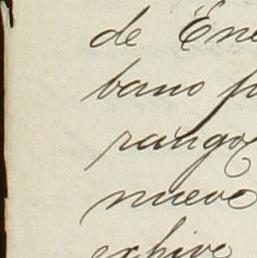 de Ene
bano p
rango
nueve
exhive